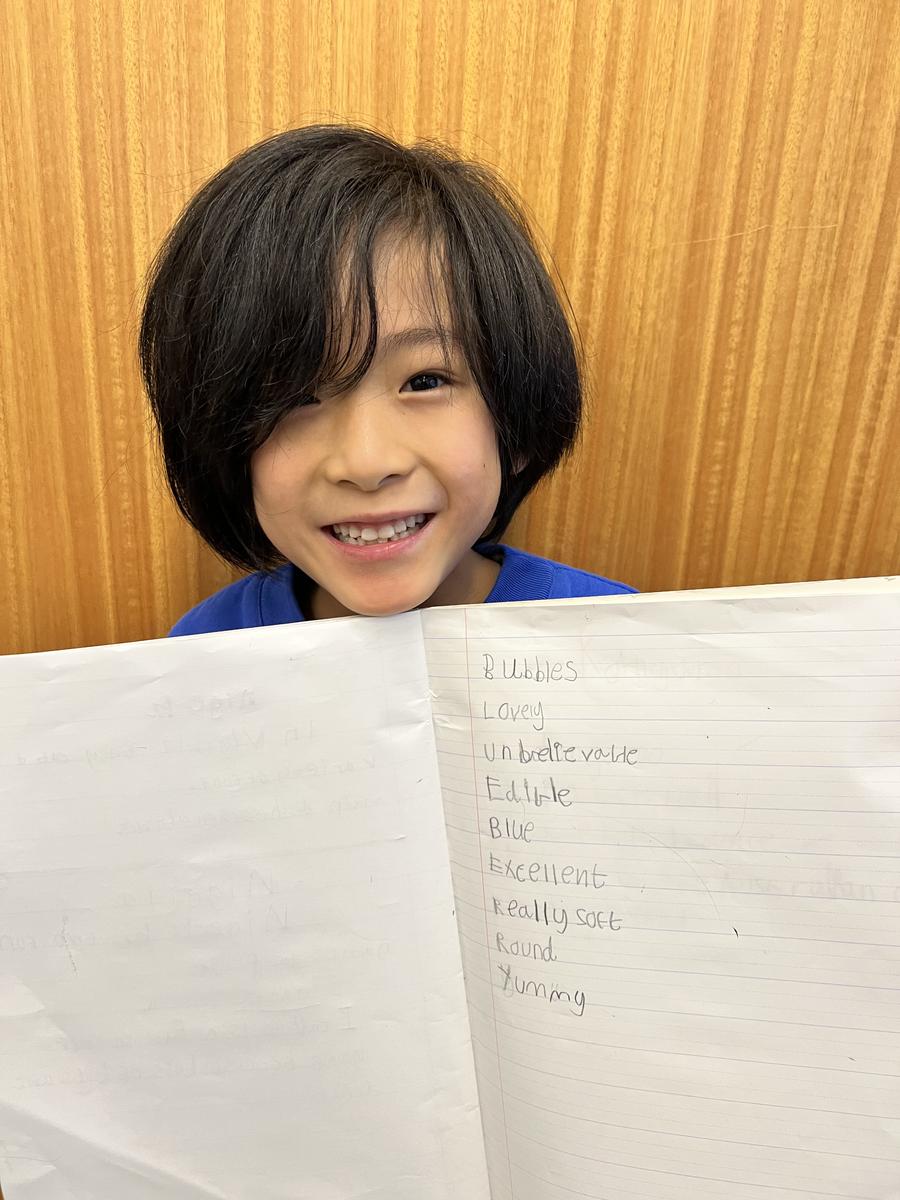 Bubbles
Lovely
unbrelievable
Edible
Blue
Excellent
Really soft
Round
Yummy